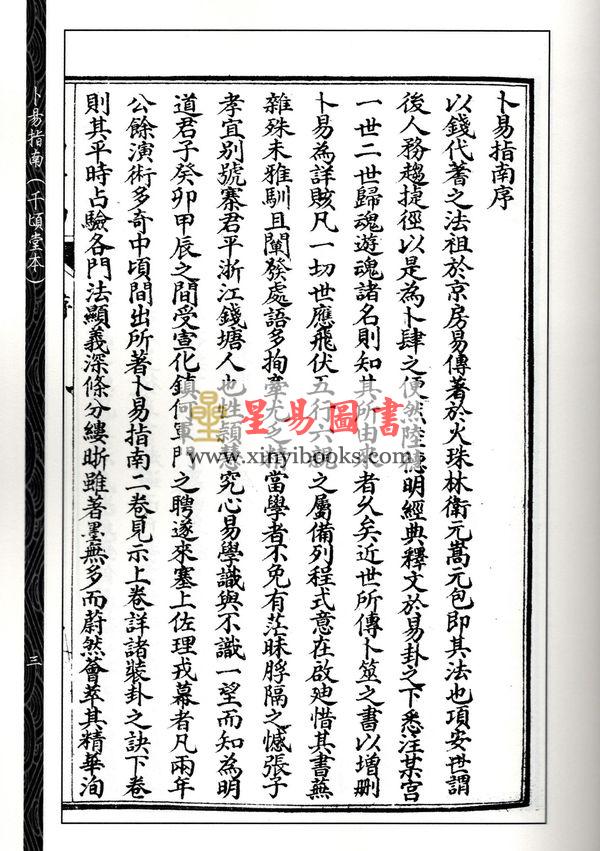 卜易指南序
以錢代蓍之法祖於京房易傳著於火珠林衛元嵩元包即其法也項安世謂
後人務趨捷徑以是為卜肆之便然陸德明經典釋文於易卦之下悉注某宮
一世二世歸魂遊魂諸名則知其所由來者久矣近世所傳卜筮之書以增刪
卜易為詳賅凡一切世應飛伏 五行六 之屬備列程式意在啟廸惜其書蕪
雜殊未雅馴且闡發處語多拘 當學者不免有茫昧脬隔之憾張子
孝宜別號寨君平浙江錢塘人也性穎 究心易學識與不識一望而知為明
道君子癸卯甲辰之間受宣化鎮何軍門之聘遂來塞上佐理戎幕者凡兩年
公餘演術多奇中頃間出所著卜易指南二卷見示上卷詳諸裝卦之訣下卷
則其平時占驗各門法顯義深條分縷晰雖著墨無多而蔚然薈萃其精華洵
卜易指南(千頃堂本)
三
星易圖書
www.xinyibooks.com